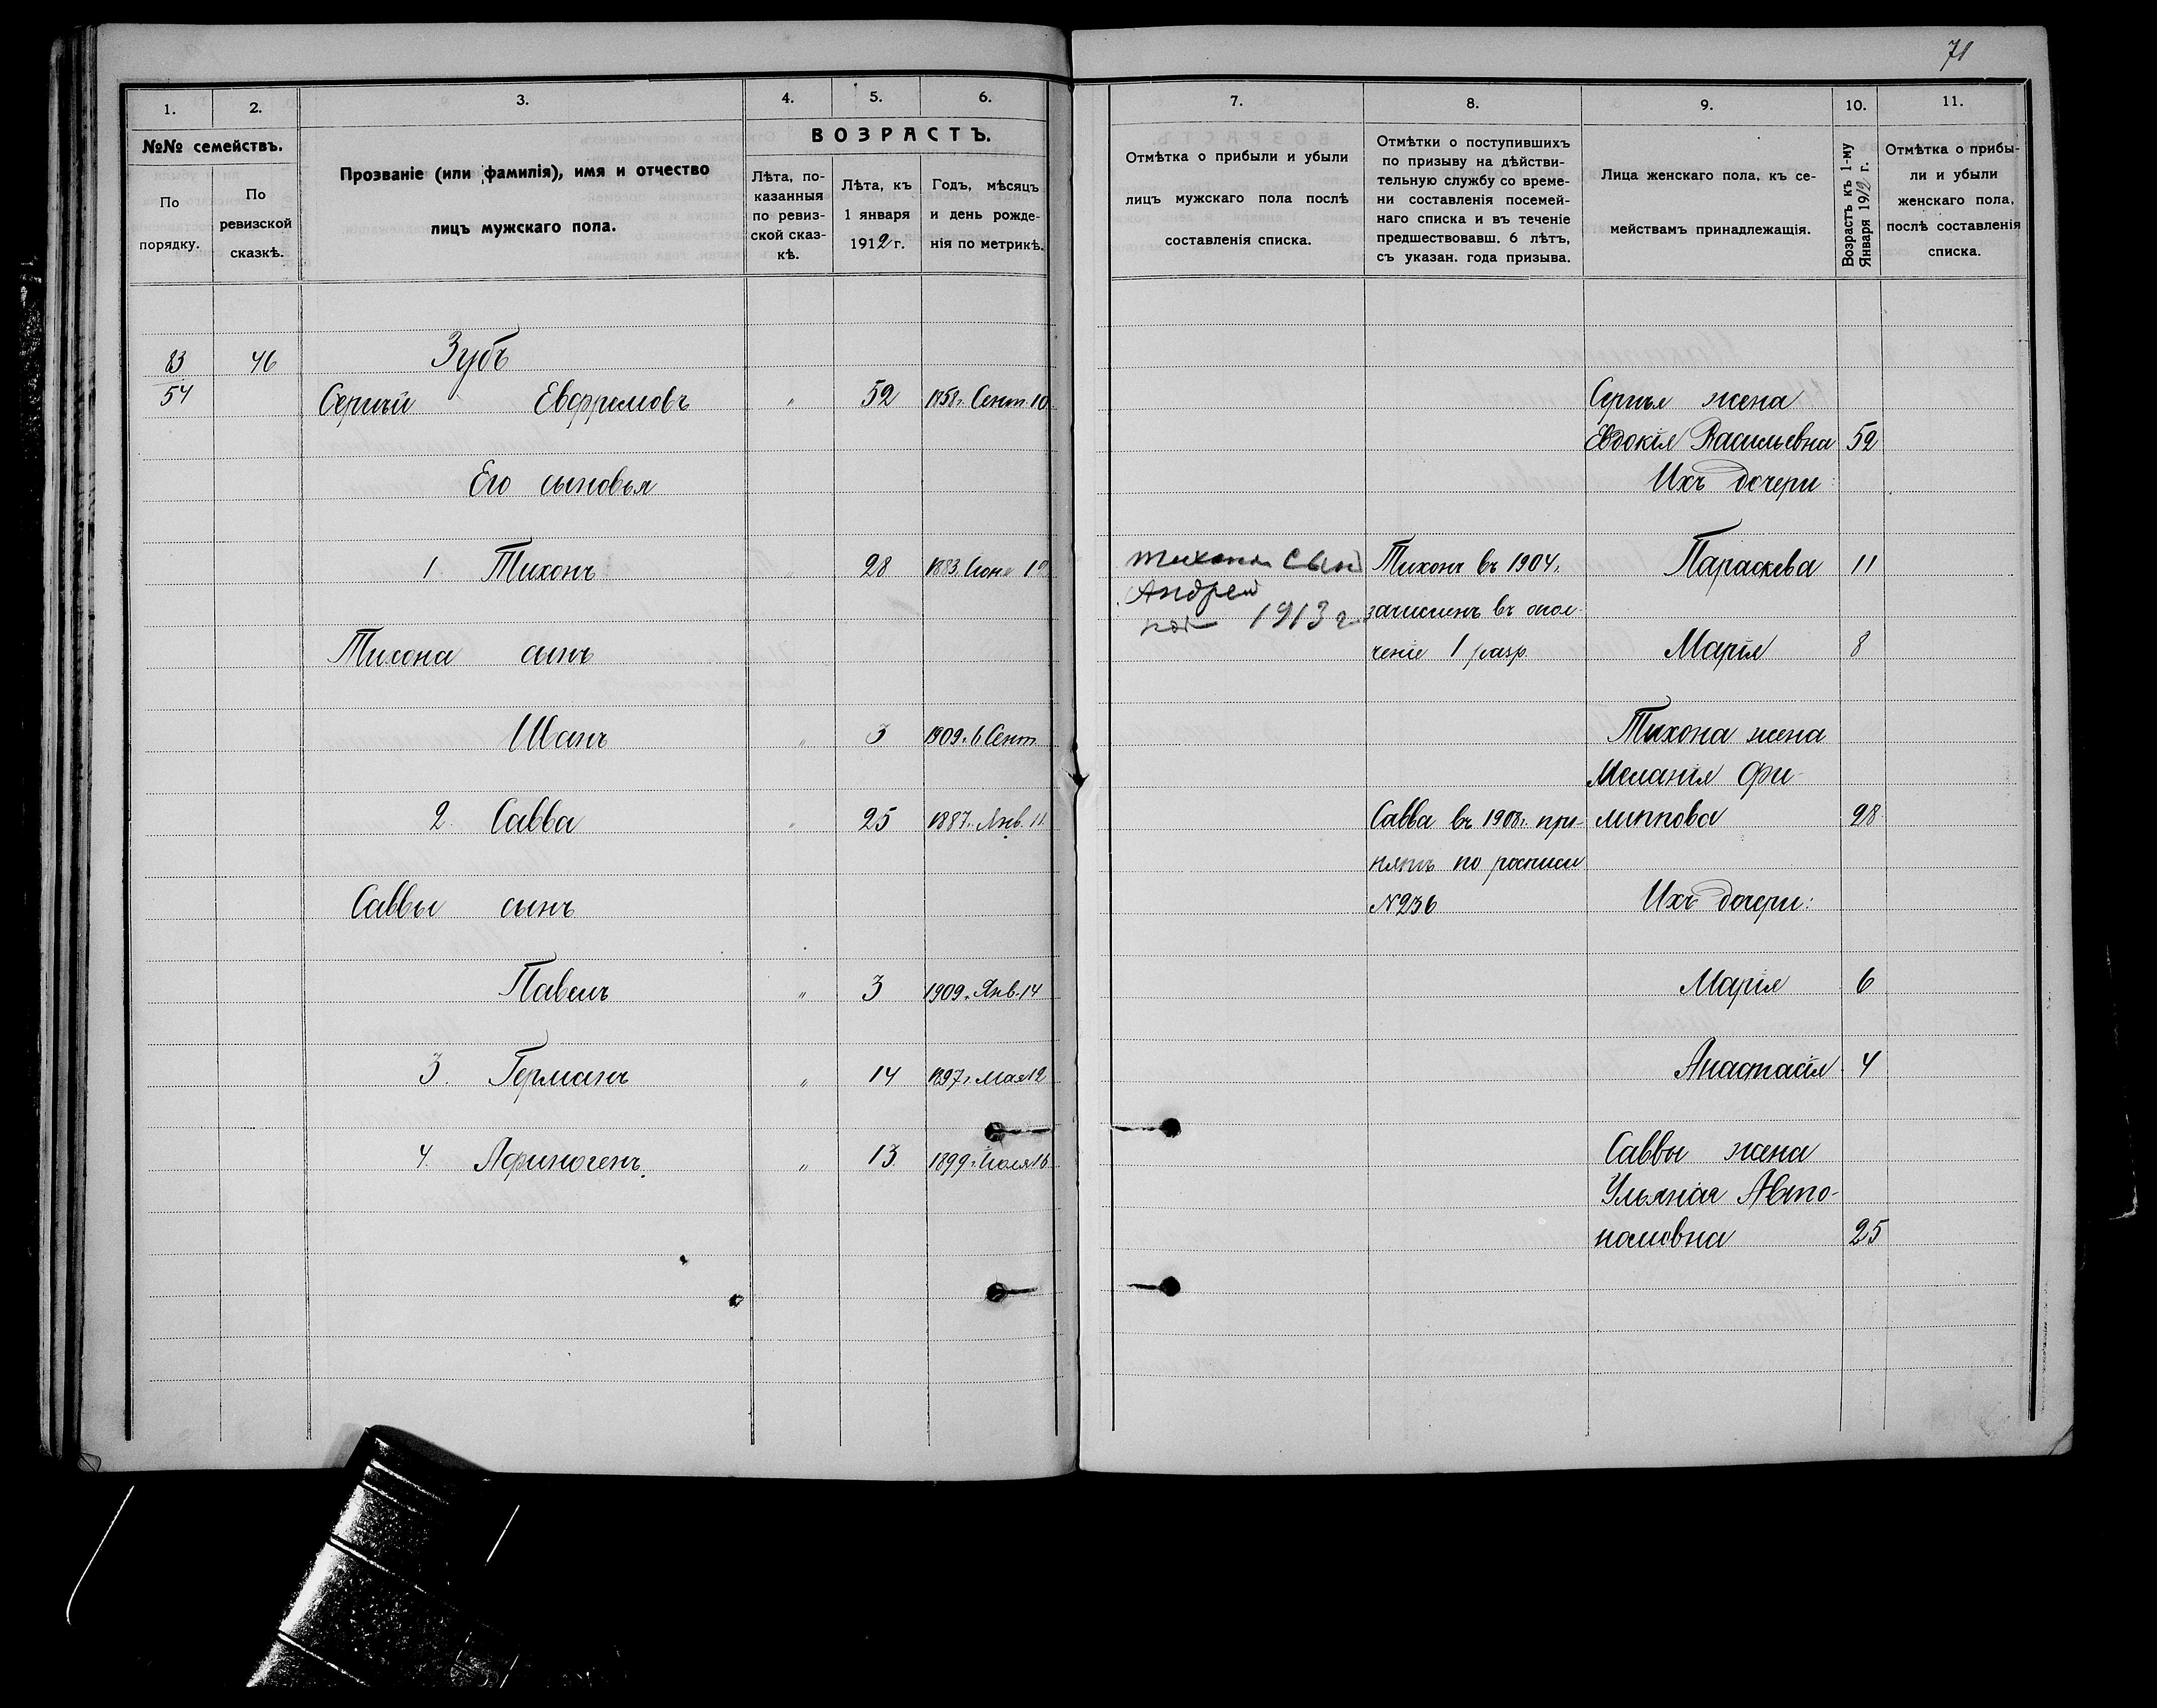 71
1. 2. 3. 4. 5. 6.
№№ семействъ.
По порядку.
По ревизской сказкѣ.
Прозваніе (или фамилія), имя и отчество
лицъ мужскаго пола.
ВОЗРАСТЪ.
Лѣта, по-
казанныя
по ревиз-
ской сказ-
кѣ.
Лѣта, къ
1 января
1912 г.
Годъ, мѣсяцъ
и день рожде-
нія по метрикѣ.
83 46 Зубъ
54 Сергѣй Евфремовъ " 52 1858г. Сент. 10
Его сыновья
1. Тихонъ 28 1883.
Тихона сынъ
Иванъ " 3 1909г. 6 Сент.
2. Савва " 25 1887г. Янв. 11
Саввы сынъ
Павелъ " 3 1909г. Янв. 14
3. Германъ " 14 1897г. Мая 12
4. Афиногенъ. " 13 1899г. Іюля 16
7. 8. 9. 10. 11.
Отмѣтка о прибыли и убыли
лицъ мужского пола послѣ
составленія списка.
Отмѣтки о поступившихъ
по призыву на дѣйстви-
тельную службу со време-
ни составленія посемей-
наго списка и въ теченіе
предшествовавш. 6 лѣтъ,
съ указан. года призыва.
Лица женскаго пола, къ се-
мействамъ принадлежащія.
Возрастъ къ 1-му
Января 1912 г.
Отмѣтка о прибы-
ли и убыли
женскаго пола,
послѣ составленія
списка.
Сергѣя жена
Евдокія Васильевна 52
Ихъ дочери:
Тихона сын Тихонъ въ 1904г. Параскева 11
Андрей
1913 г зачисленъ въ опол-
ченіе 1 разр. Марія 8
Тихона жена
Меланія Фи-
Савва въ 1908г. при- липпова 28
нятъ по росписи
№236 Ихъ дочери:
Марія 6
Анастасія 4
Саввы жена
Ульянія Авто-
номовна 25